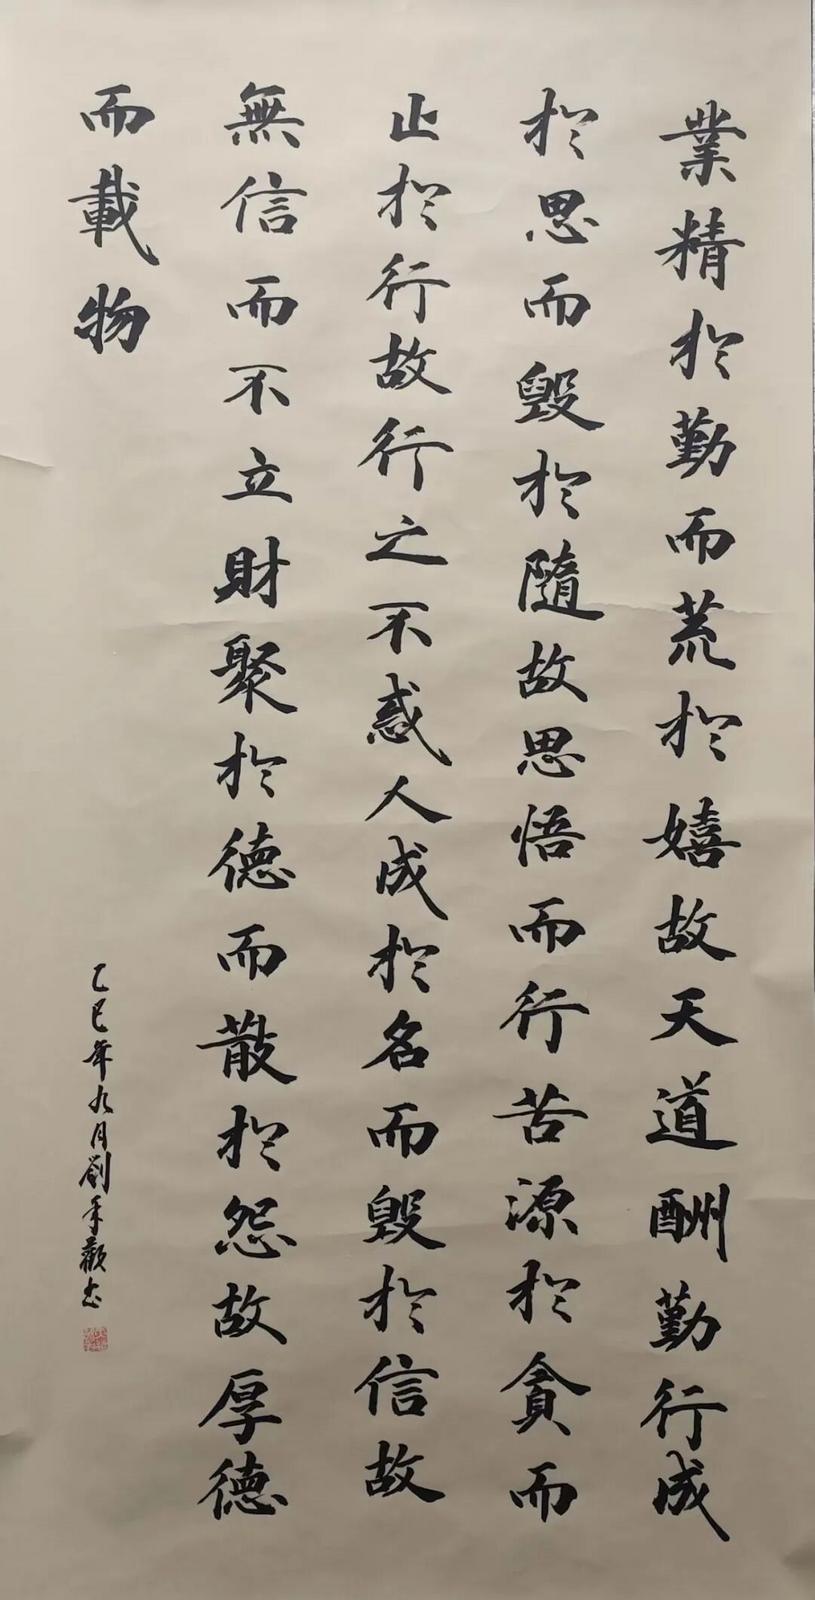 業精於勤而荒於嬉故天道酬勤行成
於思而毀於隨故思悟而行苦源於貪而
止於行故行之不惑人成於名而毀於信故
無信而不立財聚於德而散於怨故厚德
而載物
乙巳年九月劉年嶽書